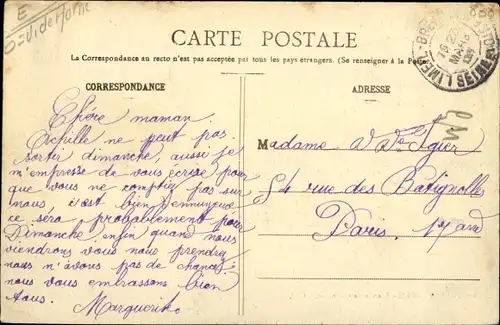 E
CARTE POSTALE
La Correspondance au recto n'est pas acceptée par tous les pays étrangers. (Se renseigner à la Poste)
CORRESPONDANCE
ADRESSE
Chère maman
Achille ne peut pas
sortir dimanche, aussi je
m'empresse de vous écrire pour
que vous ne comptiez pas sur
nous, c'est bien ennuyeux
ce sera probablement pour
Dimanche enfin quand nous
viendrons vous nous prendrez
nous n'avons pas de chance
nous vous embrassons bien
tous. Marguerite
Madame Vve
54 rue des Batignolles
Paris. 17 ard